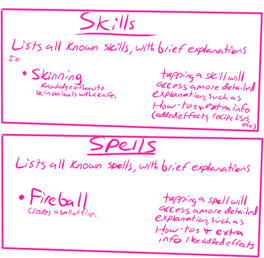 Skills
Lists all known skills, with brief explanations
I.e.
• Skinning
Knowledge on how to
skin animals with a knife.
tapping a skill will
access a more detailed
explanation, such as
How-tos & extra info
(added effects, recipe lists,
etc)
Spells
Lists all known spells, with brief explanations
• Fireball
Creates a ball of fire.
tapping a spell will
access a more detailed
explanation, such as
How-tos & extra
info like added effects